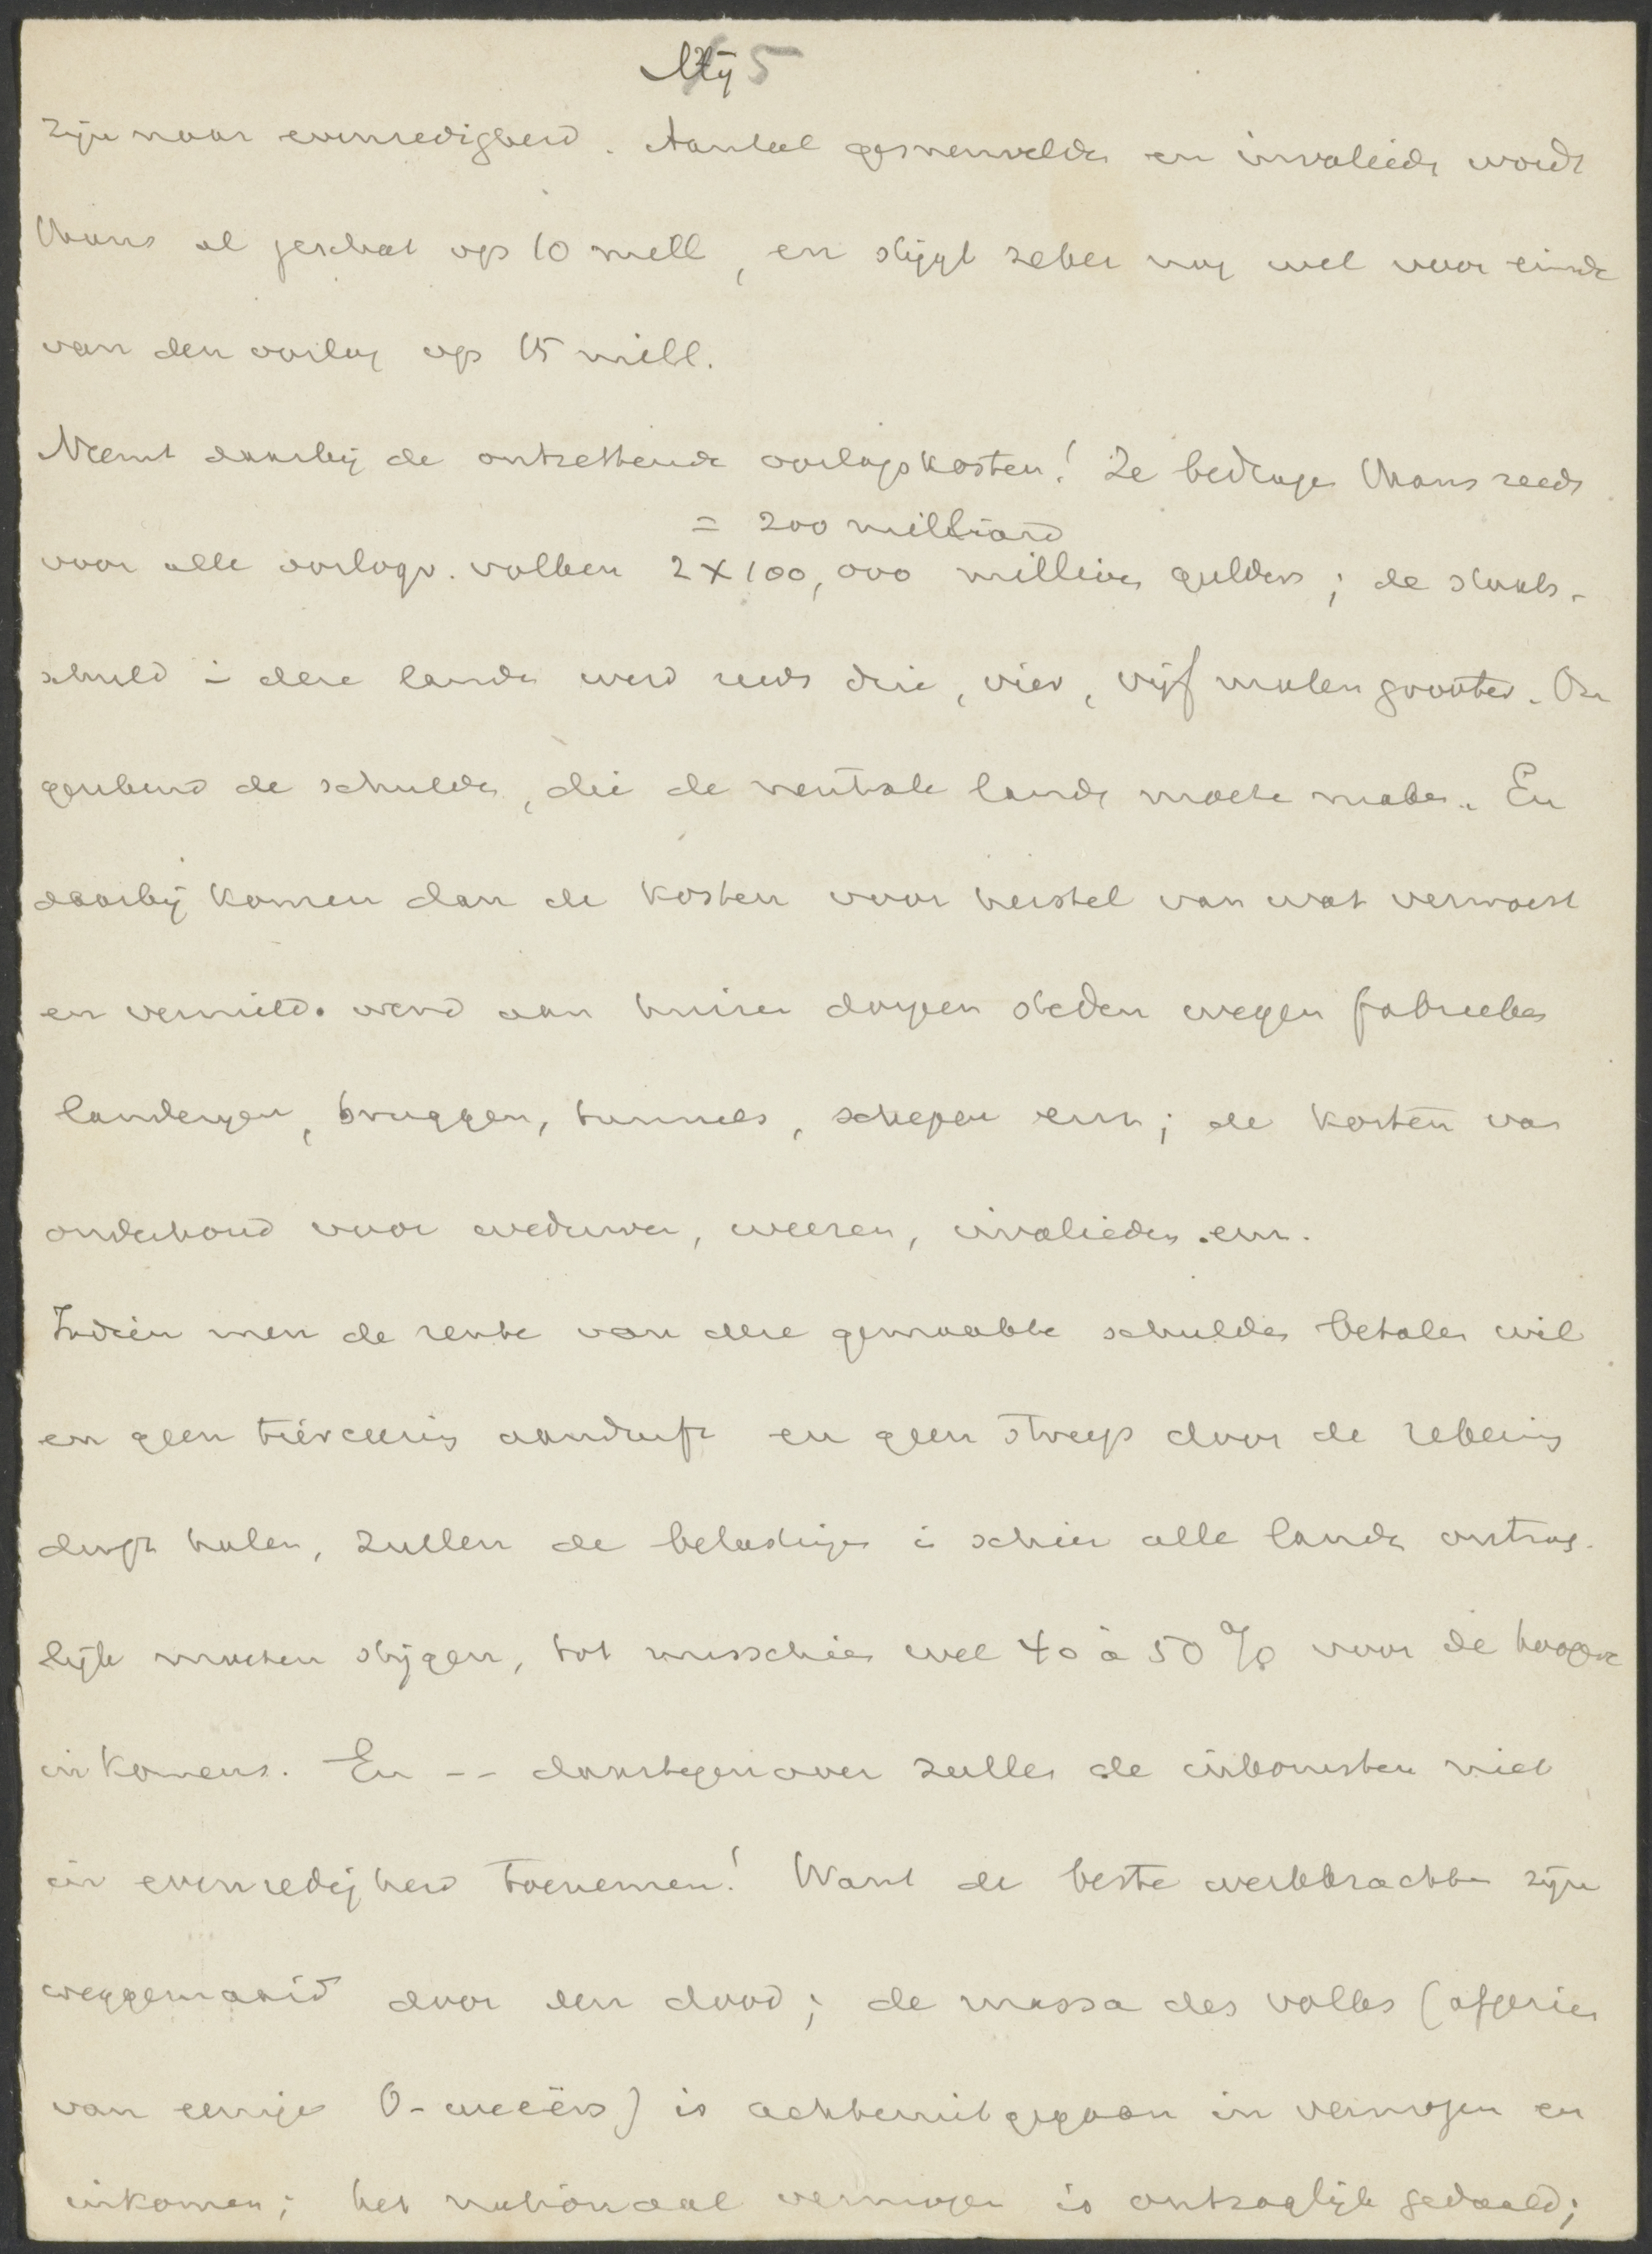 Mij 5
zijn naar evenredigheid. Aantal gesneuvelde en invalieds wordt
thans al geschat op 10 mill, en stijgt zeker nog wel voor einde
van den oorlog op 15 mill.
Neemt daarbij de ontzettende oorlogskosten! Ze bedrage thans reeds
= 200 milliard
voor alle oorlogv. volken 2 x 100,000 millioen guldens; de staats-
schuld in deze landen werd reeds drie, vier, vijf malen grooter. On
gerekend de schulden, die de neutrale landen moeste maken. En
daarbij komen dan de kosten voor herstel van wat verwoest
en vernield. werd aan huizen dorpen steden wegen fabrieken
landerijen, bruggen, tunnels, schepen enz; de kosten van
onderhoud voor weduwen, weezen, invalieden enz.
Indien men de rente van deze gemaakte schulden betalen wil
en geen tiërceering aandurft en geen streep door de rekening
durft halen, zullen de belastingen in schier alle landen ontzag-
lijk moeten stijgen, tot misschien wel 40 à 50 % voor de hoogere
inkomens. En -- daartegenover zullen de inkomsten niet
in evenredigheid toenemen! Want de beste werkkrachten zijn
weggemaaid door den dood; de massa des volks (afgezien
van eenige O-weeërs) is achteruitgegaan in vermogen en
inkomen; het nationaal vermogen is ontzaglijk gedaald;